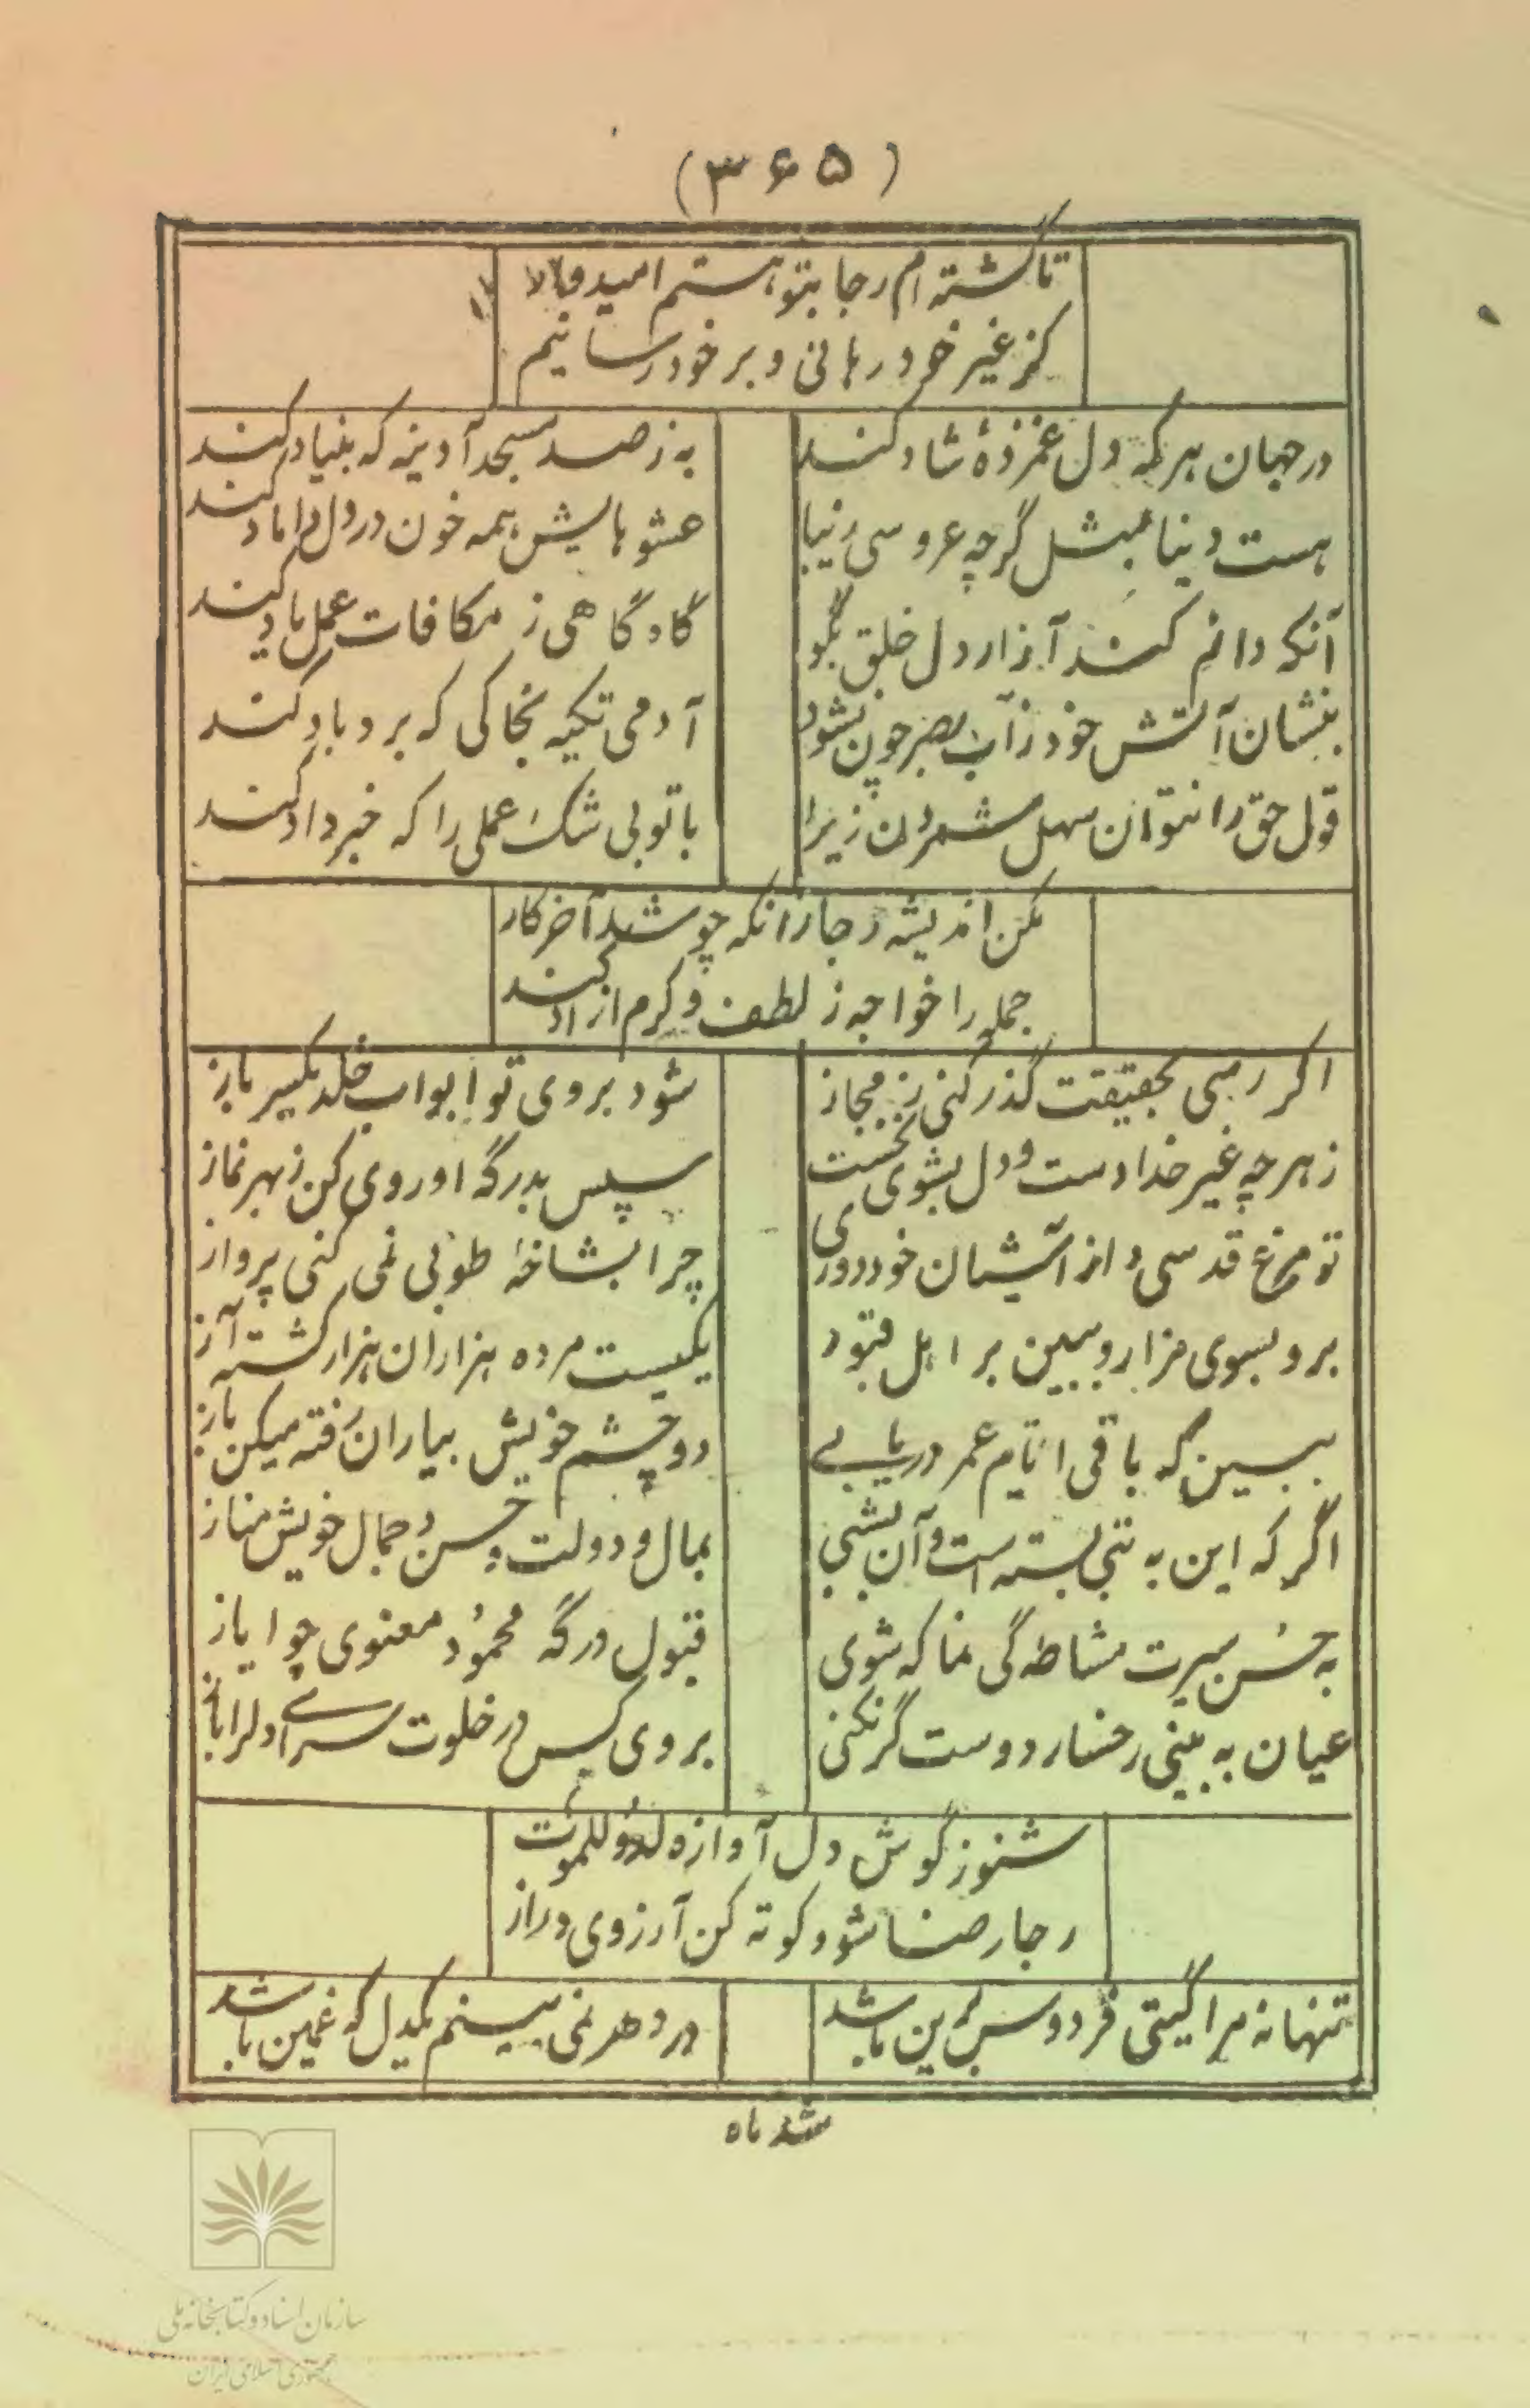 (۳۶۵)
تا گشته‌ام رجا بتو هستم امید
کز غیر خود رهانی و بر خود رسانیم
در جهان هر که دل غمزدهٔ شاد کند
به ز صد مسجد آدینه که بنیاد کند
هست دنیا بمثل گرچه عروسی زیبا
عشوهایش همه خون در دل داماد کند
آنکه دائم کند آزار دل خلق بگو
گاه گاهی ز مکافات عمل یاد کند
بنشان آتش خود ز آب بصر چون نشود
آدمی تکیه بخاکی که برد باد کند
قول حق را نتوان سهل شمردن زیرا
با تو بی شک عملی را که خبر داد کند
مکن اندیشه رجا زانکه چو شد آخر کار
جمله را خواجه ز لطف و کرم آزاد کند
اگر رهی بحقیقت گذر کنی ز مجاز
شود بروی تو ابواب خلد یکسر باز
ز هر چه غیر خدا دست و دل بشوی نخست
سپس بدرگه او روی کن ز بهر نماز
تو مرغ قدسی و از آشیان خود دوری
چرا بشاخهٔ طوبی نمی کنی پرواز
برو بسوی مزار و ببین بر اهل قبور
یکیست مرده هزاران هزار کشته آز
ببین که باقی ایام عمر دریابی
دو چشم خویش بیاران رفته میکن باز
اگر که این به تبی بسته است و آن بشبی
بمال و دولت و حسن و جمال خویش مناز
به حسن سیرت مشاطه گی نما که شوی
قبول درگه محمود معنوی چو ایاز
عیان به بینی رخسار دوست گر نکنی
بروی کس در خلوت سرای دلرا باز
شنو ز گوش دل آوازه لدوللموت
رجا رضا شو و کوته کن آرزوی دراز
تنها نه مرا گیتی فردوس برین باشد
در دهر نمی بینم یکدل که غمین باشد
شد ماه
سازمان اسناد و کتابخانه ملی
جمهوری اسلامی ایران